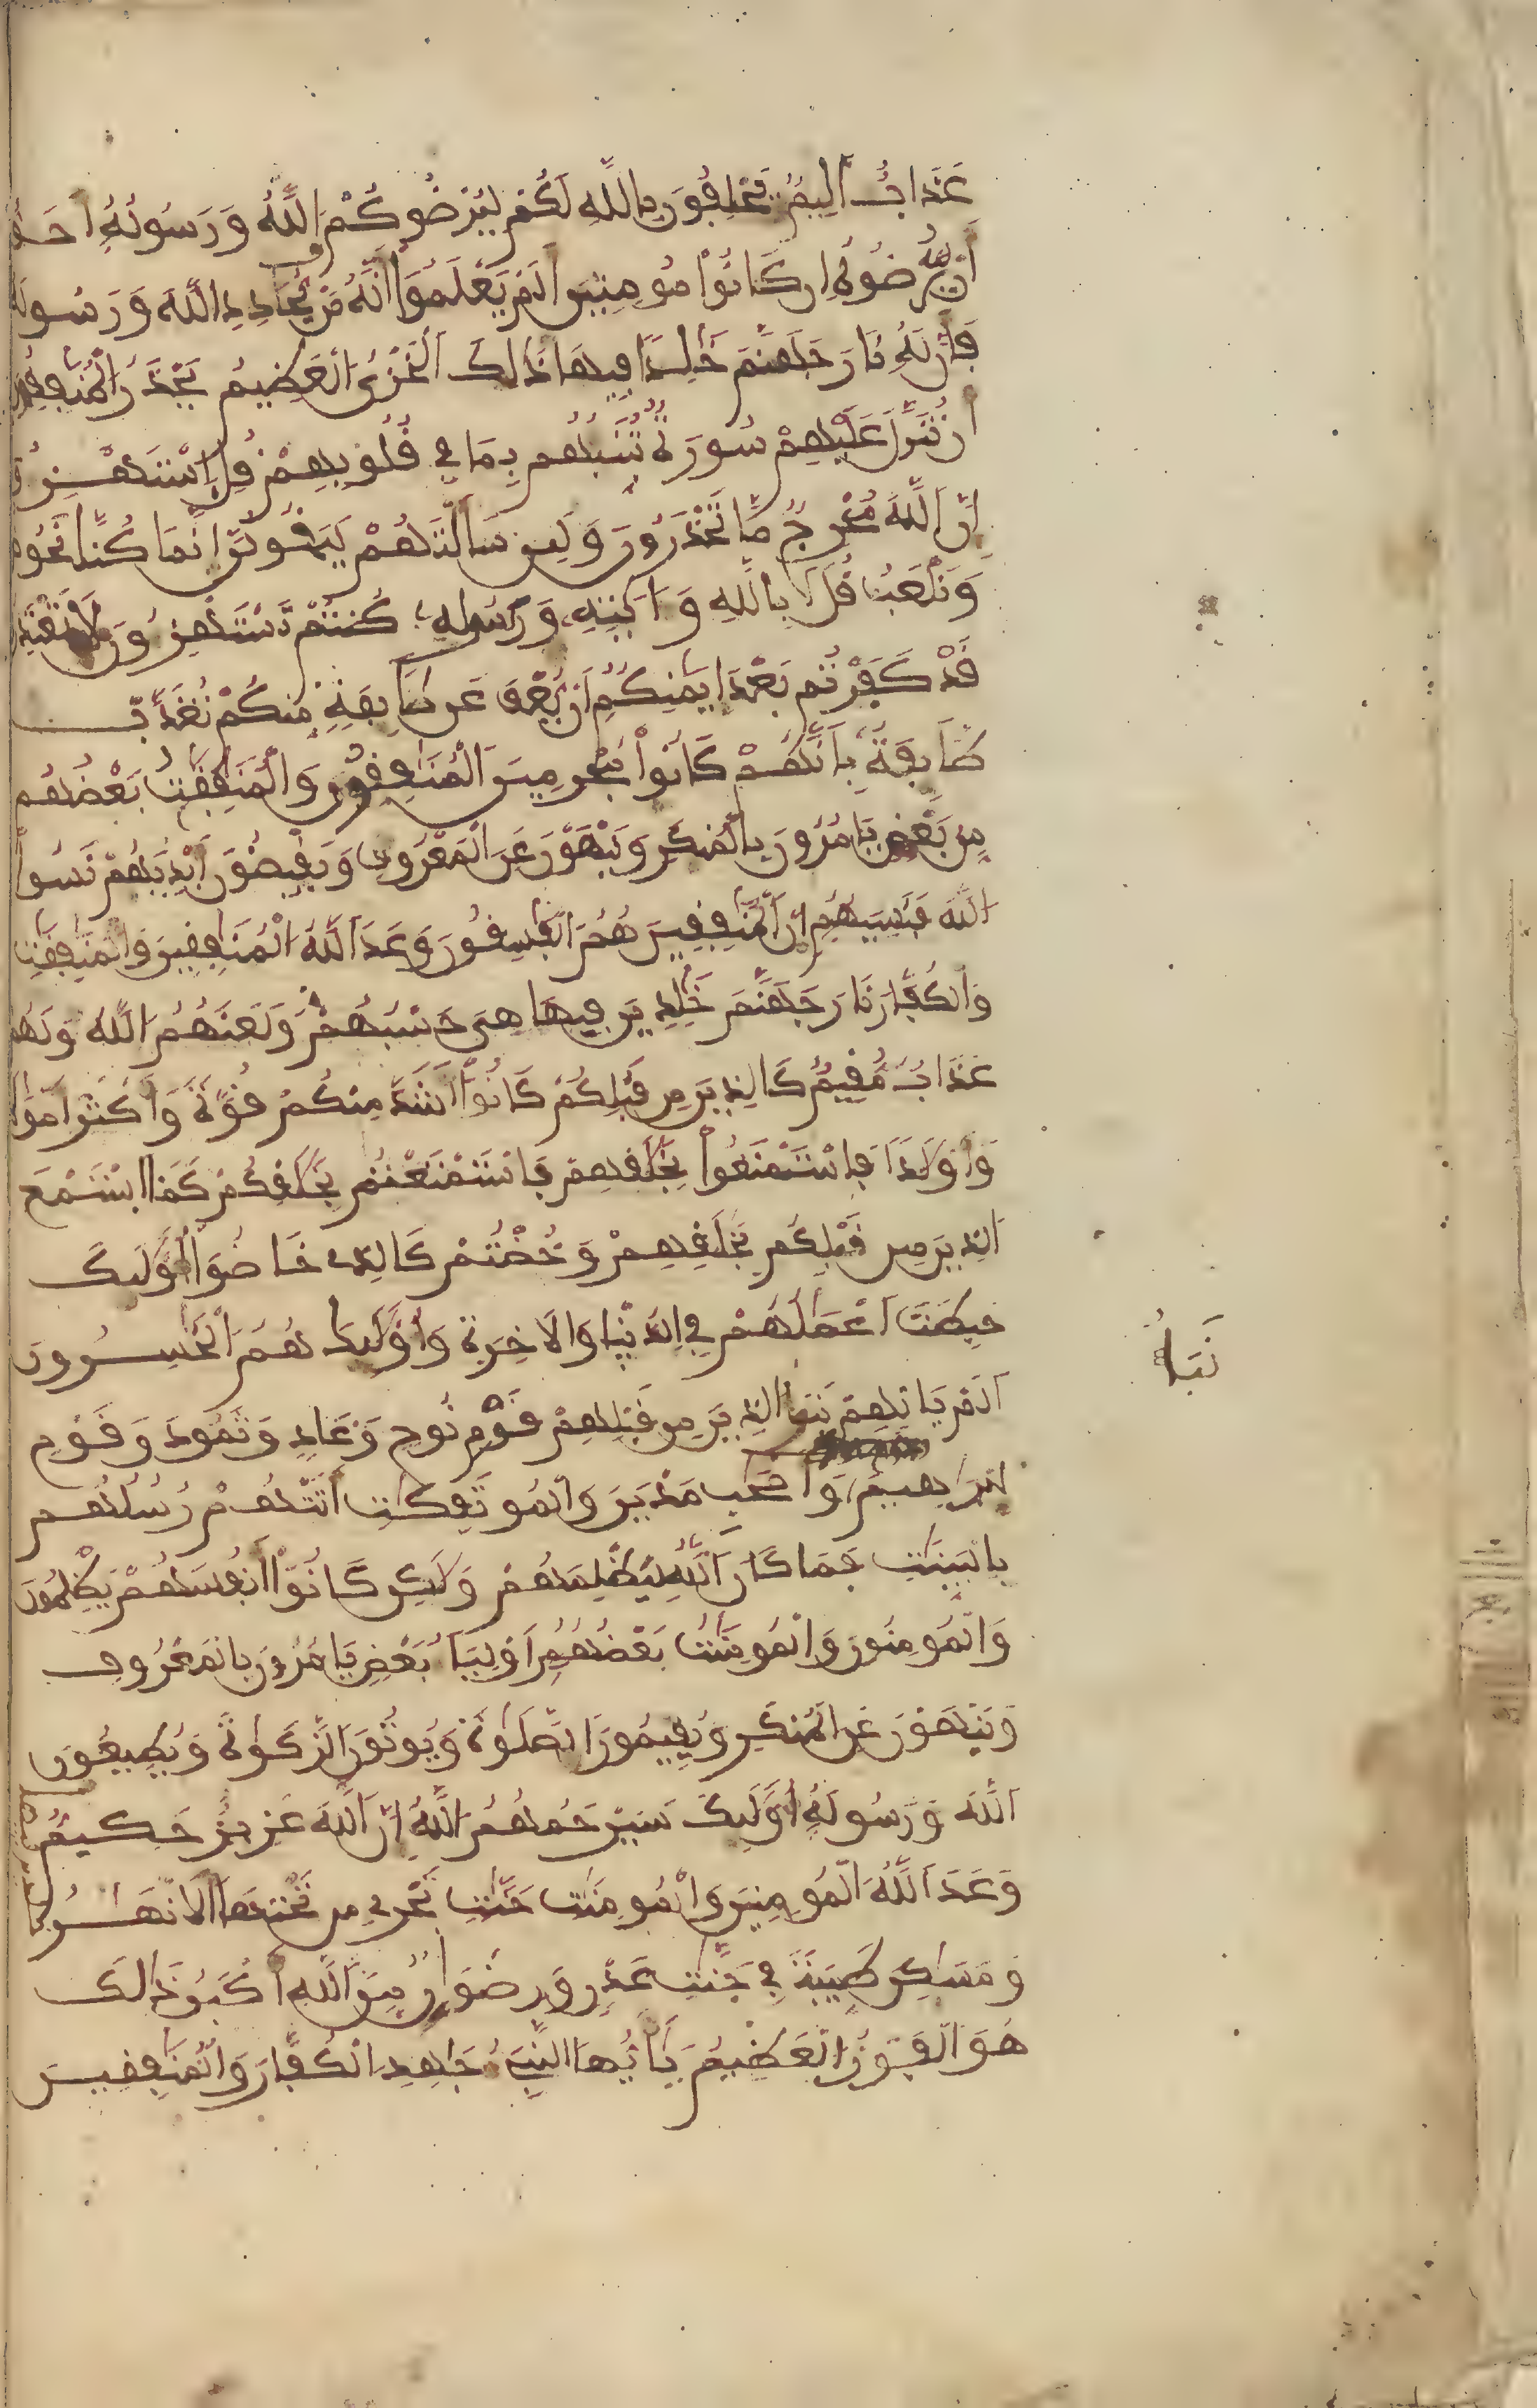 عَذَابٌ اَلِيمٌ يَحْلِفُونَ بِاللَّهِ لَكُمْ لِيُرْضُوكُمْ وَاللَّهُ وَرَسُولُهُ أَحَقُّ
أَنْ يُّرْضُوهُ إِن كَانُوا مُومِنِينَ أَلَمْ يَعْلَمُوا أَنَّهُ مَنْ يُّحَادِدِ اللَّهَ وَرَسُولَهُ
فَأَنَّ لَهُ نَارَ جَهَنَّمَ خَٰلِدًا فِيهَا ذَٰلِكَ الْخِزْىُ الْعَظِيمُ يَحْذَرُ الْمُنَٰفِقُونَ
أَن تُنَزَّلَ عَلَيْهِمْ سُورَةٌ تُنَبِّئُهُم بِمَا فِي قُلُوبِهِمْ قُلِ اِسْتَهْزِءُوا
إِنَّ اللَّهَ مُخْرِجٌ مَّا تَحْذَرُونَ وَلَئِن سَأَلْتَهُمْ لَيَقُولُنَّ إِنَّمَا كُنَّا نَخُوضُ
وَنَلْعَبُ قُلَ اَبِاللَّهِ وَءَايَٰتِهِ وَرَسُولِهِ كُنتُمْ تَسْتَهْزِءُونَ لَا تَعْتَذِرُوا
قَدْ كَفَرْتُم بَعْدَ إِيمَٰنِكُمْ إِنْ يُّعْفَ عَن طَآئِفَةٍ مِّنكُمْ تُعَذَّبْ
طَآئِفَةٌ بِأَنَّهُمْ كَانُوا مُجْرِمِينَ الْمُنَٰفِقُونَ وَالْمُنَٰفِقَٰتُ بَعْضُهُم
مِّن بَعْضٍ يَامُرُونَ بِالْمُنكَرِ وَيَنْهَوْنَ عَنِ الْمَعْرُوفِ وَيَقْبِضُونَ أَيْدِيَهُمْ نَسُوا
اللَّهَ فَنَسِيَهُمْ إِنَّ الْمُنَٰفِقِينَ هُمُ الْفَٰسِقُونَ وَعَدَ اللَّهُ الْمُنَٰفِقِينَ وَالْمُنَٰفِقَٰتِ
وَالْكُفَّارَ نَارَ جَهَنَّمَ خَٰلِدِينَ فِيهَا هِيَ حَسْبُهُمْ وَلَعَنَهُمُ اللَّهُ وَلَهُمْ
عَذَابٌ مُّقِيمٌ كَالذِينَ مِن قَبْلِكُمْ كَانُوا أَشَدَّ مِنكُمْ قُوَّةً وَأَكْثَرَ أَمْوَٰلًا
وَأَوْلَٰدًا فَاسْتَمْتَعُوا بِخَلَٰقِهِمْ فَاسْتَمْتَعْتُم بِخَلَٰقِكُمْ كَمَا اسْتَمْتَعَ
الذِينَ مِن قَبْلِكُم بِخَلَٰقِهِمْ وَخُضْتُمْ كَالذِي خَاضُوا أُولَٰئِكَ
حَبِطَتَ اَعْمَٰلُهُمْ فِي الدُّنْيَا وَالْاخِرَةِ وَأُولَٰئِكَ هُمُ الْخَٰسِرُونَ
أَلَمْ يَاتِهِمْ نَبَأُ الذِينَ مِن قَبْلِهِمْ قَوْمِ نُوحٍ وَعَادٍ وَثَمُودَ وَقَوْمِ
نَبَأُ
إِبْرَٰهِيمَ وَأَصْحَٰبِ مَدْيَنَ وَالْمُوتَفِكَٰتِ أَتَتْهُمْ رُسُلُهُم
بِالْبَيِّنَٰتِ فَمَا كَانَ اللَّهُ لِيَظْلِمَهُمْ وَلَٰكِن كَانُوا أَنفُسَهُمْ يَظْلِمُونَ
وَالْمُومِنُونَ وَالْمُومِنَٰتُ بَعْضُهُمْ أَوْلِيَآءُ بَعْضٍ يَامُرُونَ بِالْمَعْرُوفِ
وَيَنْهَوْنَ عَنِ الْمُنكَرِ وَيُقِيمُونَ الصَّلَوٰةَ وَيُوتُونَ الزَّكَوٰةَ وَيُطِيعُونَ
اللَّهَ وَرَسُولَهُ أُولَٰئِكَ سَيَرْحَمُهُمُ اللَّهُ إِنَّ اللَّهَ عَزِيزٌ حَكِيمٌ
وَعَدَ اللَّهُ الْمُومِنِينَ وَالْمُومِنَٰتِ جَنَّٰتٍ تَجْرِي مِن تَحْتِهَا الْأَنْهَٰرُ
وَمَسَٰكِنَ طَيِّبَةً فِي جَنَّٰتِ عَدْنٍ وَرِضْوَٰنٌ مِّنَ اللَّهِ أَكْبَرُ ذَٰلِكَ
هُوَ الْفَوْزُ الْعَظِيمُ يَٰأَيُّهَا النَّبِيءُ جَٰهِدِ الْكُفَّارَ وَالْمُنَٰفِقِينَ